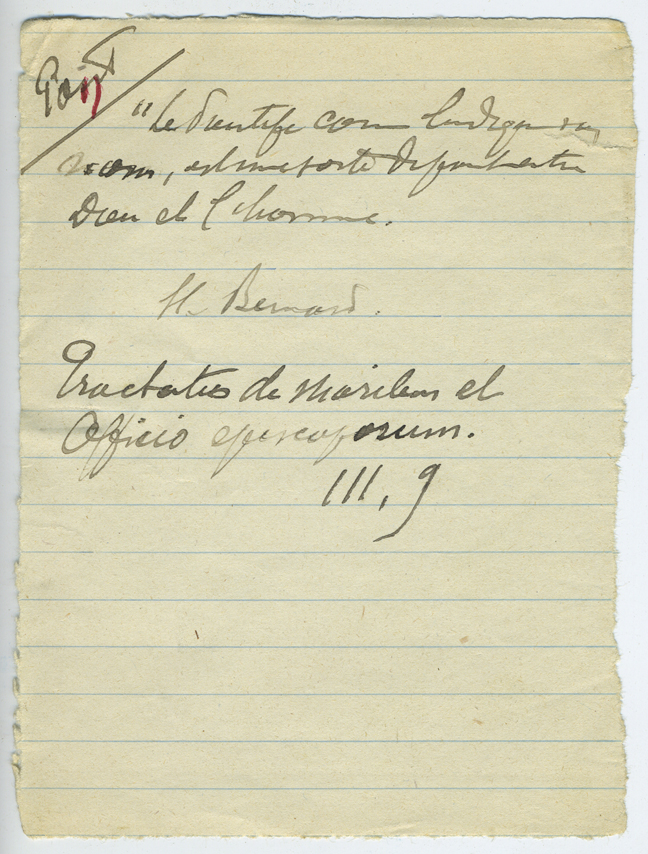 Pont
"Le Pontife com l'indique son
nom, est une sorte de pont entre
Dieu et l'homme.
St. Bernard.
Tractatus de Moribus et
Officio episcoporum.
III, 9